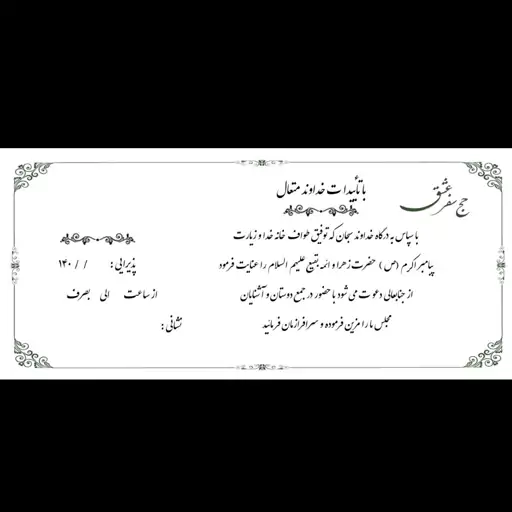 حج سفر عشق
با تأییدات خداوند متعال
با سپاس به درگاه خداوند سبحان که توفیق طواف خانه خدا و زیارت
پیامبر اکرم (ص) حضرت زهرا و ائمه بقیع علیهم السلام را عنایت فرمود
از جنابعالی دعوت می شود با حضور در جمع دوستان و آشنایان
مجلس ما را مزین فرموده و سرافرازمان فرمائید
پذیرایی : / / ۱۴۰
از ساعت الی بصرف
نشانی :